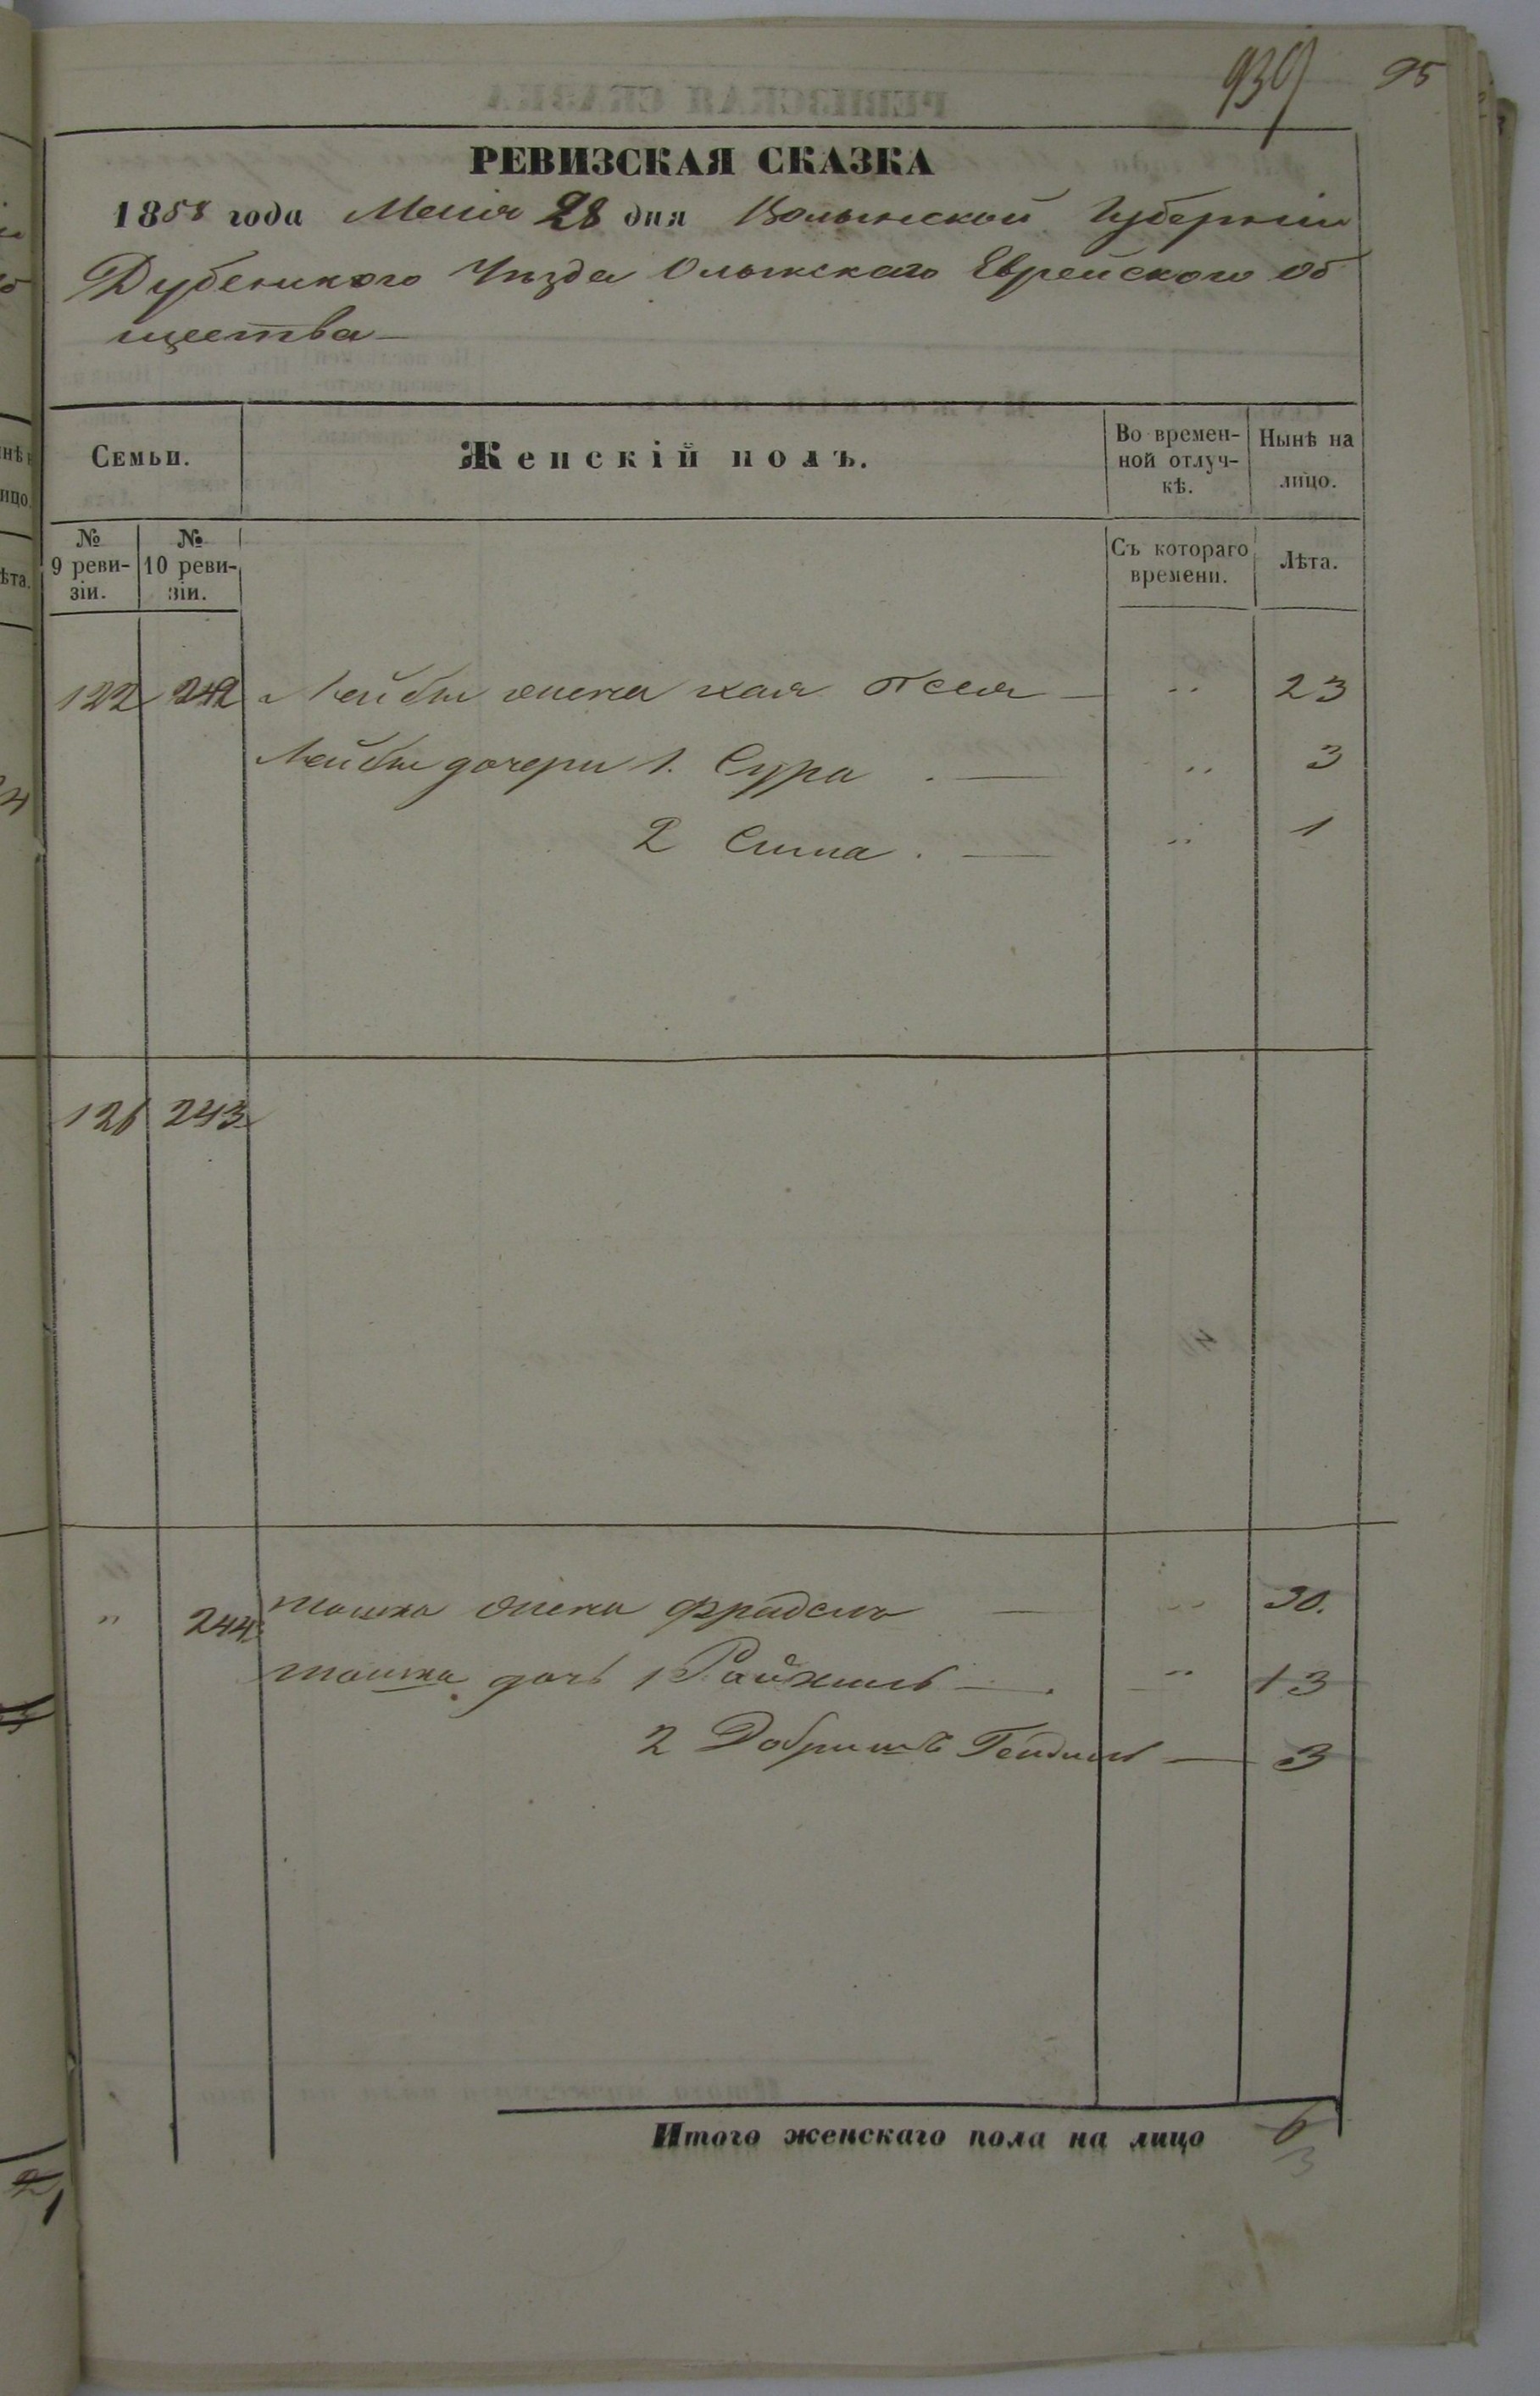 939 95
РЕВИЗСКАЯ СКАЗКА
1858 года Маия 28 дня Волынской Губернии
Дубенского Уѣзда Олыкскаго Еврейского об
щества
Семьи. Женскій полъ. Во времен-
ной отлуч-
кѣ. Нынѣ на
лицо.
№
9 реви-
зіи. №
10 реви-
зіи. Съ котораго
времени. Лѣта.
122 242 Лейбы жена Хая 23
Лейбы дочери 1. Сура 3
2 Сима 1
126 243
" 244 жена Фрадель 30.
дочь 1 Райхиль 13
2 Добришъ 3
Итого женскаго пола на лицо 6
3